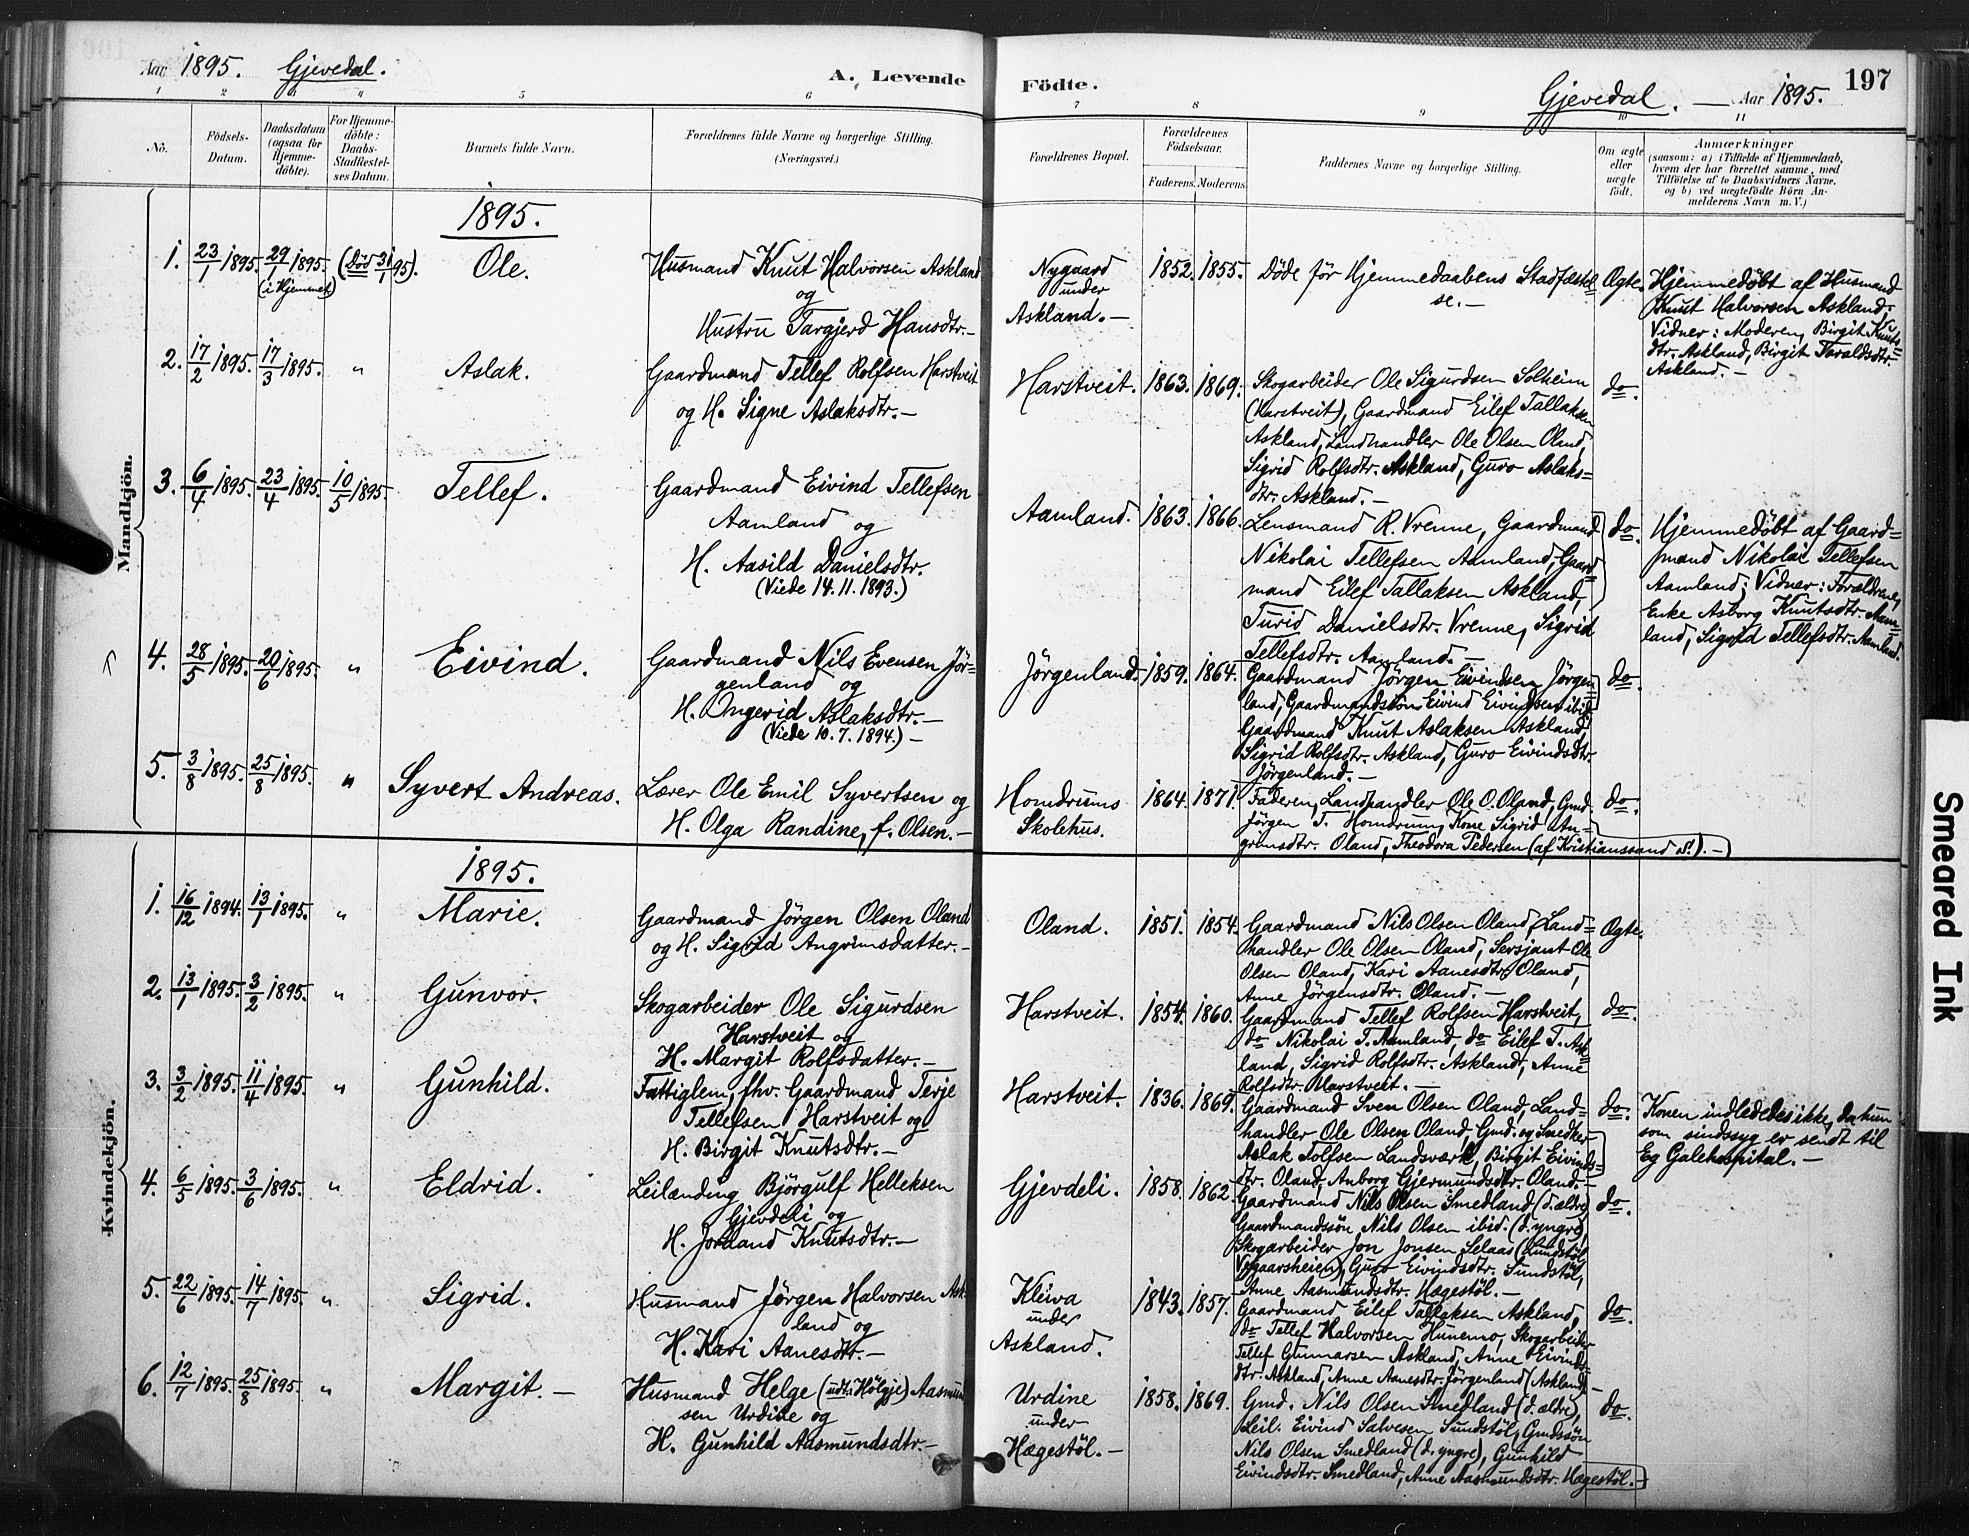 Aar 1895. Gjevedal.
A. Levende Födte.
Gjevedal. — Aar 1895.
197
1 2 3 4 5 6 7 8 9 10 11
No.
Födsels-Datum.
Daabsdatum (ogsaa for Hjemme-döbte).
For Hjemme-döbte: Daabs-Stadfæstel-ses Datum.
Barnets fulde Navn.
Forældrenes fulde Navne og borgerlige Stilling.
(Næringsvei.)
Forældrenes Bopæl.
Forældrenes Födselsaar.
Faderens. Moderens.
Faddernes Navne og borgerlige Stilling.
Om ægte eller uægte födt.
Anmærkninger
(saasom: a) i Tilfælde af Hjemmedaab,
hvem der har forrettet samme, med
Tilföielse af to Daabsvidners Navne,
og b) ved uægtefödte Börn An-
melderens Navn m. V.)
Mandkjön.
1895.
1. 23/1 1895. 29/1 1895. (i Hjemmet) (Död 31/1 95).
Ole.
Husmand Knut Halvorsen Askland
og
Hustru Targjerd Hansdtr.—
Nygaard
under
Askland.—
1852. 1855.
Döde för Hjemmedaabens Stadfæstel=
se.—
Ægte.
Hjemmedöbt af Husmand
Knut Halvorsen Askland;
Vidner: Moderen, Birgit Knuts=
dtr. Askland, Birgit Taraldsdtr.
Askland.—
2. 17/2 1895. 17/3 1895. "
Aslak.
Gaardmand Tellef Rolfsen Harstveit
og H. Signe Aslaksdtr.—
Harstveit. 1863. 1869.
Skogarbeider Ole Sigurdsen Solheim
(Harstveit), Gaardmand Eilef Tallaksen
Askland, Landhandler Ole Olsen Oland,
Sigrid Rolfsdtr. Askland, Guro Aslaks=
dtr. Askland.—
do.
3. 6/4 1895. 23/4 1895. 10/5 1895.
Tellef.
Gaardmand Eivind Tellefsen
Aamland og
H. Aasild Danielsdtr.
(Viede 14.11.1893.)
Aamland. 1863. 1866.
Lensmand R. Vrenne, Gaardmand
Nikolai Tellefsen Aamland, Gaard=
mand Eilef Tallaksen Askland,
Turid Danielsdtr. Vrenne, Sigrid
Tellefsdtr. Aamland.—
do.
Hjemmedöbt af Gaard=
mand Nikolai Tellefsen
Aamland; Vidner: Forældrene,
Enke Asborg Knutsdtr. Aam=
land, Sigrid Tellefsdtr. Aamland.
4. 28/5 1895. 20/6 1895. "
Eivind.
Gaardmand Nils Evensen Jör=
genland og
H. Ingerid Aslaksdtr.—
(Viede 10.7.1894.)—
Jörgenland. 1859. 1864.
Gaardmand Jörgen Eivindsen Jörgen=
land, Gaardmandssön Eivind Eivindsen ibid.
Gaardmand Knut Aslaksen Askland,
Sigrid Rolfsdtr. Askland, Guro Eivindsdtr.
Jörgenland.—
do.
5. 3/8 1895. 25/8 1895. "
Syvert Andreas.
Lærer Ole Emil Syvertsen og
H. Olga Randine, f. Olsen.—
Homdrums
Skolehus.
1864. 1871.
Faderen, Landhandler Ole O. Oland, Gmd.
Jörgen T. Homdrum, Kone Sigrid An=
grimsdtr. Oland, Theodora Pedersen (af Kristianssand S.).—
do.
Kvindekjön.
1895.
1. 16/12 1894. 13/1 1895. "
Marie.
Gaardmand Jörgen Olsen Oland
og H. Sigrid Angrimsdatter.—
Oland. 1851. 1854.
Gaardmand Nils Olsen Oland, Land=
handler Ole Olsen Oland, Sersjant Ole
Olsen Oland, Kari Aanesdtr. Oland,
Anne Jörgensdtr. Oland.—
Ægte.
2. 13/1 1895. 3/2 1895. "
Gunvor.
Skogarbeider Ole Sigurdsen
Harstveit og
H. Margit Rolfsdatter.—
Harstveit. 1854. 1860.
Gaardmand Tellef Rolfsen Harstveit,
do Nikolai T. Aamland, do Eilef T. Ask=
land, Sigrid Rolfsdtr. Askland, Anne
Rolfsdtr. Harstveit.—
do.
3. 3/2 1895. 11/4 1895. "
Gunhild.
Fattiglem, fhv. Gaardmand Terje
Tellefsen Harstveit og
H. Birgit Knutsdtr.—
Harstveit. 1836. 1869.
Gaardmand Sven Olsen Oland, Land=
handler Ole Olsen Oland, Gmd. og Smed
Aslak Tolfsen Landsværk, Birgit Eivinds=
dtr. Oland, Anborg Gjermundsdtr. Oland.—
do.
Konen indledes ikke, da hun
som sindssyg er sendt til
Eg Galehospital.—
4. 6/5 1895. 3/6 1895. "
Eldrid.
Leilænding Björgulf Helleksen
Gjevdeli og
H. Joraand Knutsdtr.—
Gjevdeli. 1858. 1862.
Gaardmand Nils Olsen Smedland (d. ældre),
Gaardmandssön Nils Olsen ibid. (d. yngre),
Skogarbeider Jon Jonsen Selaas (Sundstöl,
Vegaarsheien), Guro Eivindsdtr. Sundstöl,
Anne Aasmundsdtr. Hægestöl.—
do.
5. 22/6 1895. 14/7 1895. "
Sigrid.
Husmand Jörgen Halvorsen Ask=
land og
H. Kari Aanesdtr.—
Kleiva
under
Askland.
1843. 1857.
Gaardmand Eilef Tallaksen Askland,
do Tellef Halvorsen Hunemo, Skogarbeider
Tellef Gunnarsen Askland, Anne Eivinds=
dtr. Askland, Anne Aanesdtr. Jörgenland (Askland)—
do.
6. 12/7 1895. 25/8 1895. "
Margit.—
Husmand Helge (udt. Hölgje) Aasmund
sen Urdine og
H. Gunhild Aasmundsdtr.—
Urdine
under
Hægestöl.—
1858. 1869.
Gmd. Nils Olsen Smedland (d. ældre),
Leil. Eivind Salvesen Sundstöl, Gmdssön
Nils Olsen Smedland (d. yngre), Gunhild
Eivindsdtr. Smedland, Anne Aasmundsdtr. Hægestöl.—
do.
Smeared Ink